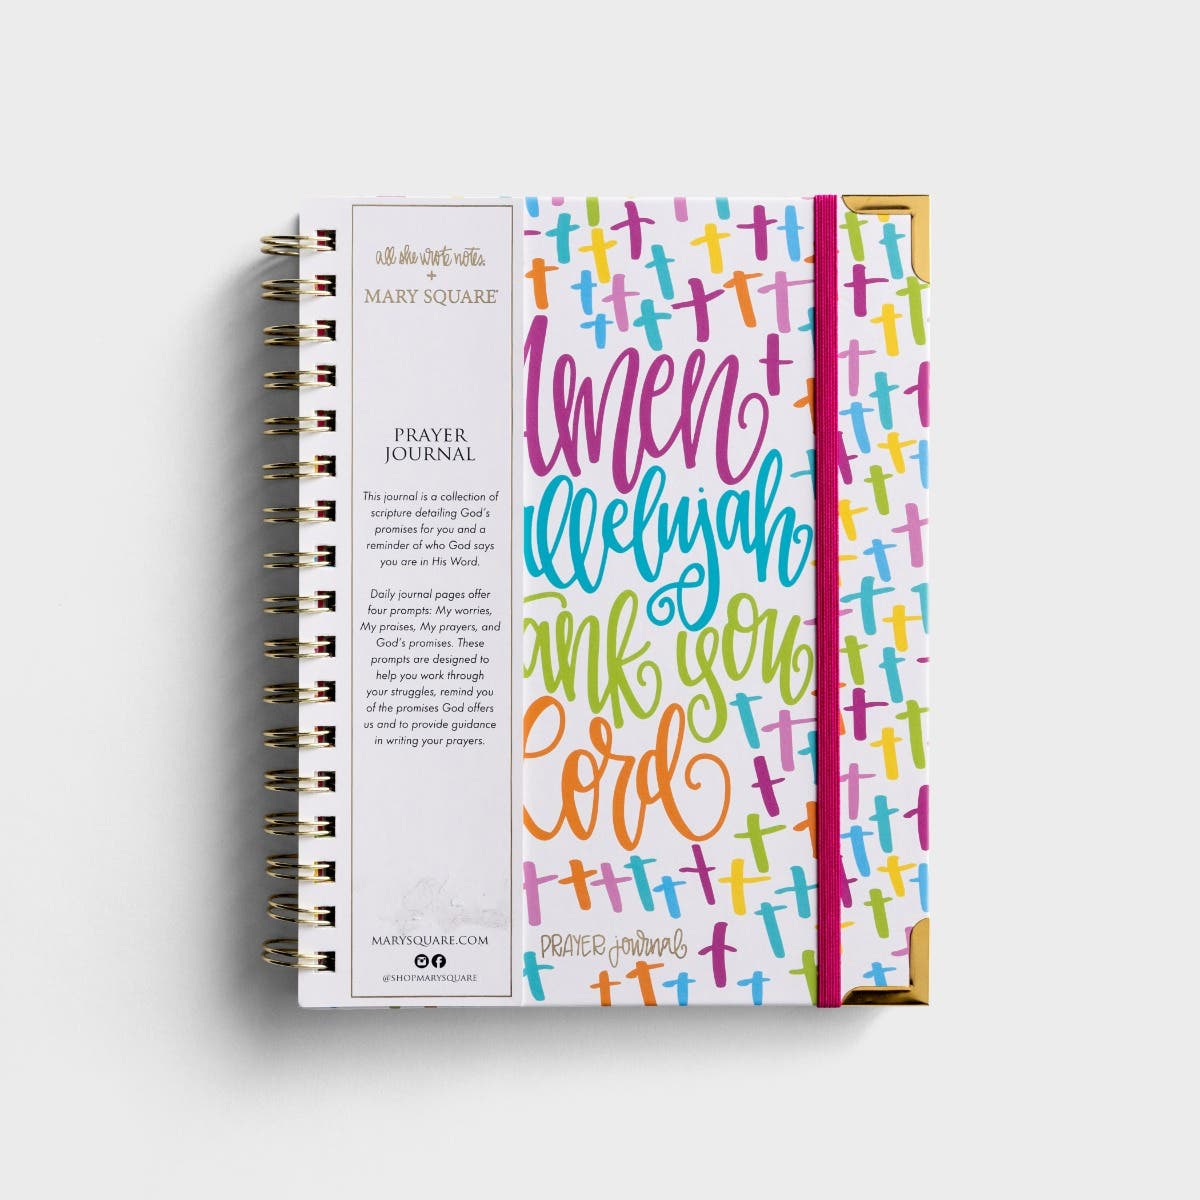 all she wrote notes.
+
MARY SQUARE®
PRAYER
JOURNAL
This journal is a collection of
scripture detailing God's
promises for you and a
reminder of who God says
you are in His Word.
Daily journal pages offer
four prompts: My worries,
My praises, My prayers, and
God's promises. These
prompts are designed to
help you work through
your struggles, remind you
of the promises God offers
us and to provide guidance
in writing your prayers.
MARYSQUARE.COM
@SHOPMARYSQUARE
Amen
allelujah
ank you
Lord
PRAYER journal